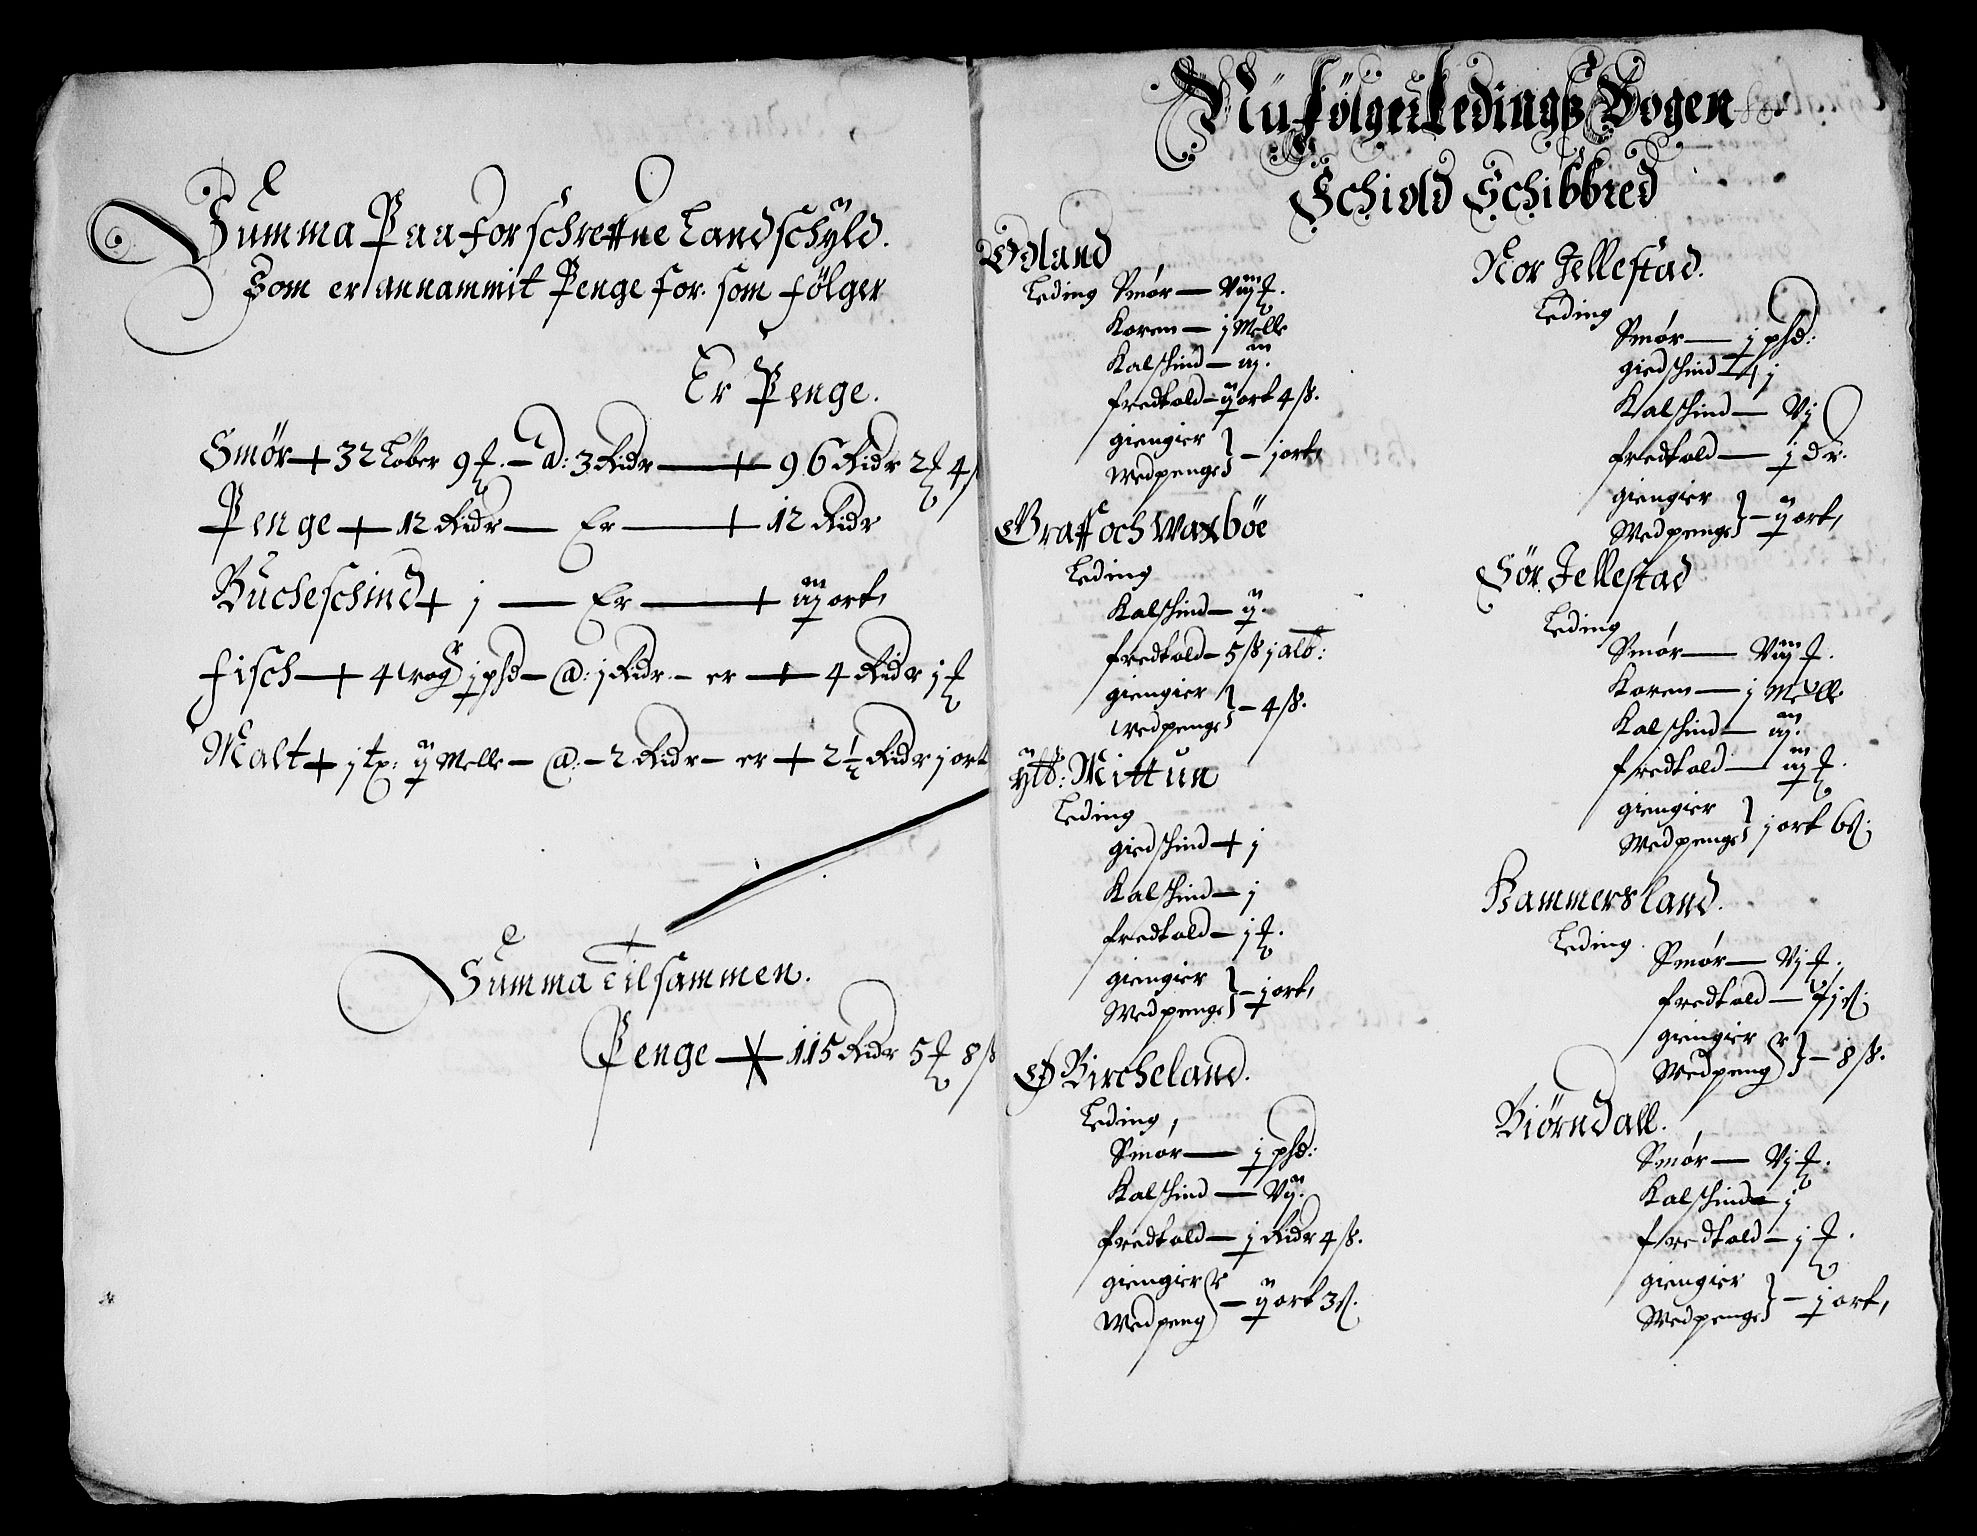 Summa Paa forschreffne Landschyld.
Som er annammit Penge for. som følger
Er Penge.
Smør + 32 Løber 9 ℔. — a: 3 Ridr — + 96 Ridr 2 ℔ 4 ß
Penge + 12 Ridr — Er — + 12 Ridr
Bucheschind + j — Er — + iij ort,
fisch — + 4 wog j phd — @: j Ridr — er — + 4 Ridr j ℔
Malt + j tp: ij Melle — @: — 2 Ridr — er + 2½ Ridr j ort
Summa Tilsammen.
Penge — 115 Ridr 5 ℔ 8 ß
Nu følger Ledings Bogen
Schiold Schibbred
Ødland
Leding Smør — Viij ℔.
Koren — j Melle
Kalschind — iij.
fredtold — ij ort 4 ß.
giengier
Wedpenge } — j ort,
Graff och Waxbøe
Leding
Kalschind — ij.
fredtold — 5 ß j alb:
giengier
wedpenge } — 4 ß.
ytb: Mittun
Leding
giedschind + j
Kalschind — j
fredtold — j ℔.
giengier
Wedpenge } — j ort,
Ø Bircheland.
Leding,
Smør — j phd:
Kalschind — Vij.
fredtold — j Ridr 4 ß.
giengier
Wedpeng } — ij ort 3 ß.
Nor Jellestad.
Leding
Smør — j phd:
giedschind + j
Kalschind — Vj
fredtold — j dr.
giengier
Wedpenge } — ij ort,
Sør. Jellestad
Leding
Smør — Viij ℔.
Koren — j Melle
Kalschind — iij.
fredtold — iij ℔.
giengier
Wedpenge } j ort 6 ß.
Hammersland.
Leding.
Smør — Vj ℔.
fredtold — Vj ß.
giengier
Wedpeng } — 8 ß.
Biørndall.
Smør — Vj ℔.
Kalschind — j
fredtold — j ℔.
giengier
Wedpenge } — j ort,